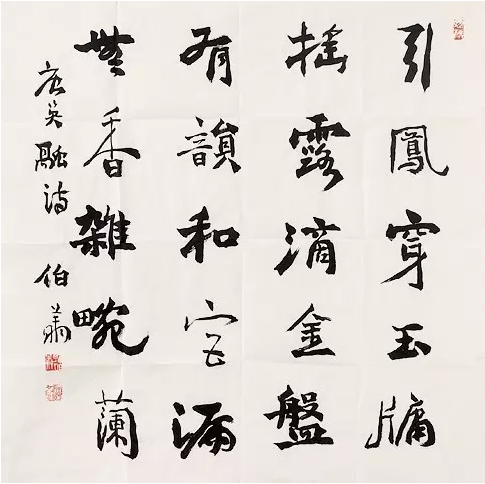 引鳳穿玉牖
摇露滴金盤
有韻和宫漏
無香雜畹蘭
唐吴融詩 伯蕭